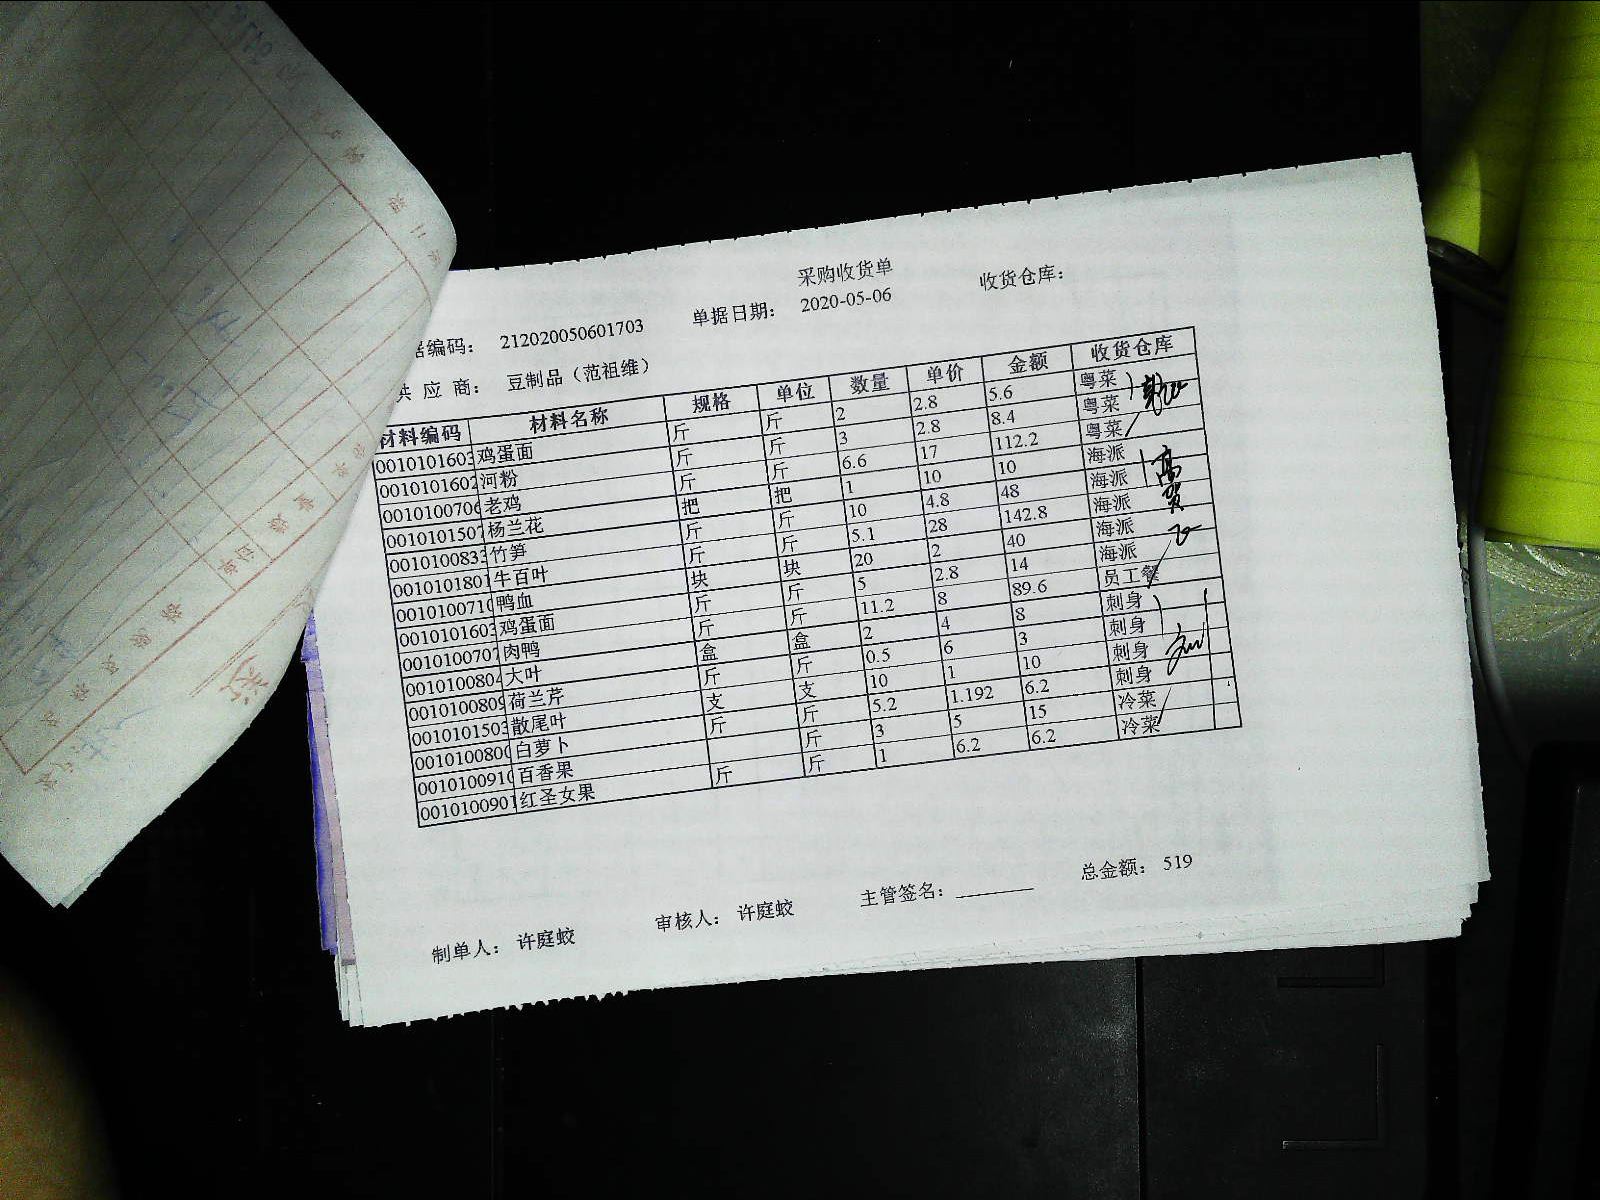 采购收货单
据编码： 212020050601703 单据日期： 2020-05-06 收货仓库：
供 应 商： 豆制品（范祖维）
材料编码 材料名称 规格 单位 数量 单价 金额 收货仓库
0010101603 鸡蛋面 斤 斤 2 2.8 5.6 粤菜
0010101602 河粉 斤 斤 3 2.8 8.4 粤菜
0010100706 老鸡 斤 斤 6.6 17 112.2 粤菜
0010101507 杨兰花 把 把 1 10 10 海派
0010100833 竹笋 斤 斤 10 4.8 48 海派
0010101801 牛百叶 斤 斤 5.1 28 142.8 海派
0010100710 鸭血 块 块 20 2 40 海派
0010101603 鸡蛋面 斤 斤 5 2.8 14 海派
0010100707 肉鸭 斤 斤 11.2 8 89.6 员工餐
0010100804 大叶 盒 盒 2 4 8 刺身
0010100809 荷兰芹 斤 斤 0.5 6 3 刺身
0010101503 散尾叶 支 支 10 1 10 刺身
0010100800 白萝卜 斤 斤 5.2 1.192 6.2 刺身
0010100910 百香果 斤 3 5 15 冷菜
0010100901 红圣女果 斤 斤 1 6.2 6.2 冷菜
总金额： 519
制单人： 许庭蛟 审核人： 许庭蛟 主管签名：